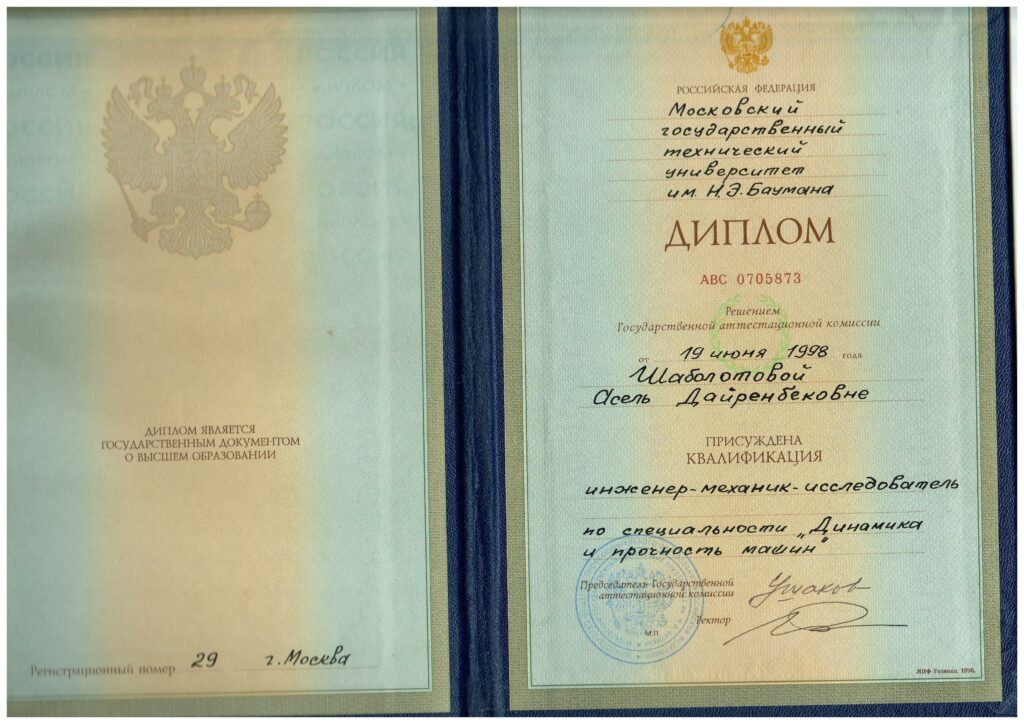 ДИПЛОМ ЯВЛЯЕТСЯ
ГОСУДАРСТВЕННЫМ ДОКУМЕНТОМ
О ВЫСШЕМ ОБРАЗОВАНИИ
Регистрационный номер 29 г. Москва
РОССИЙСКАЯ ФЕДЕРАЦИЯ
Московский
государственный
технический
университет
им. Н.Э. Баумана
ДИПЛОМ
АВС 0705873
Решением
Государственной аттестационной комиссии
от 19 июня 1998 года
Шаболотовой
Асель Дайренбековне
ПРИСУЖДЕНА
КВАЛИФИКАЦИЯ
инженер-механик-исследователь
по специальности „Динамика
и прочность машин"
Председатель Государственной
аттестационной комиссии Ушаков
Ректор
М.П.
МПФ Гознака. 1996.